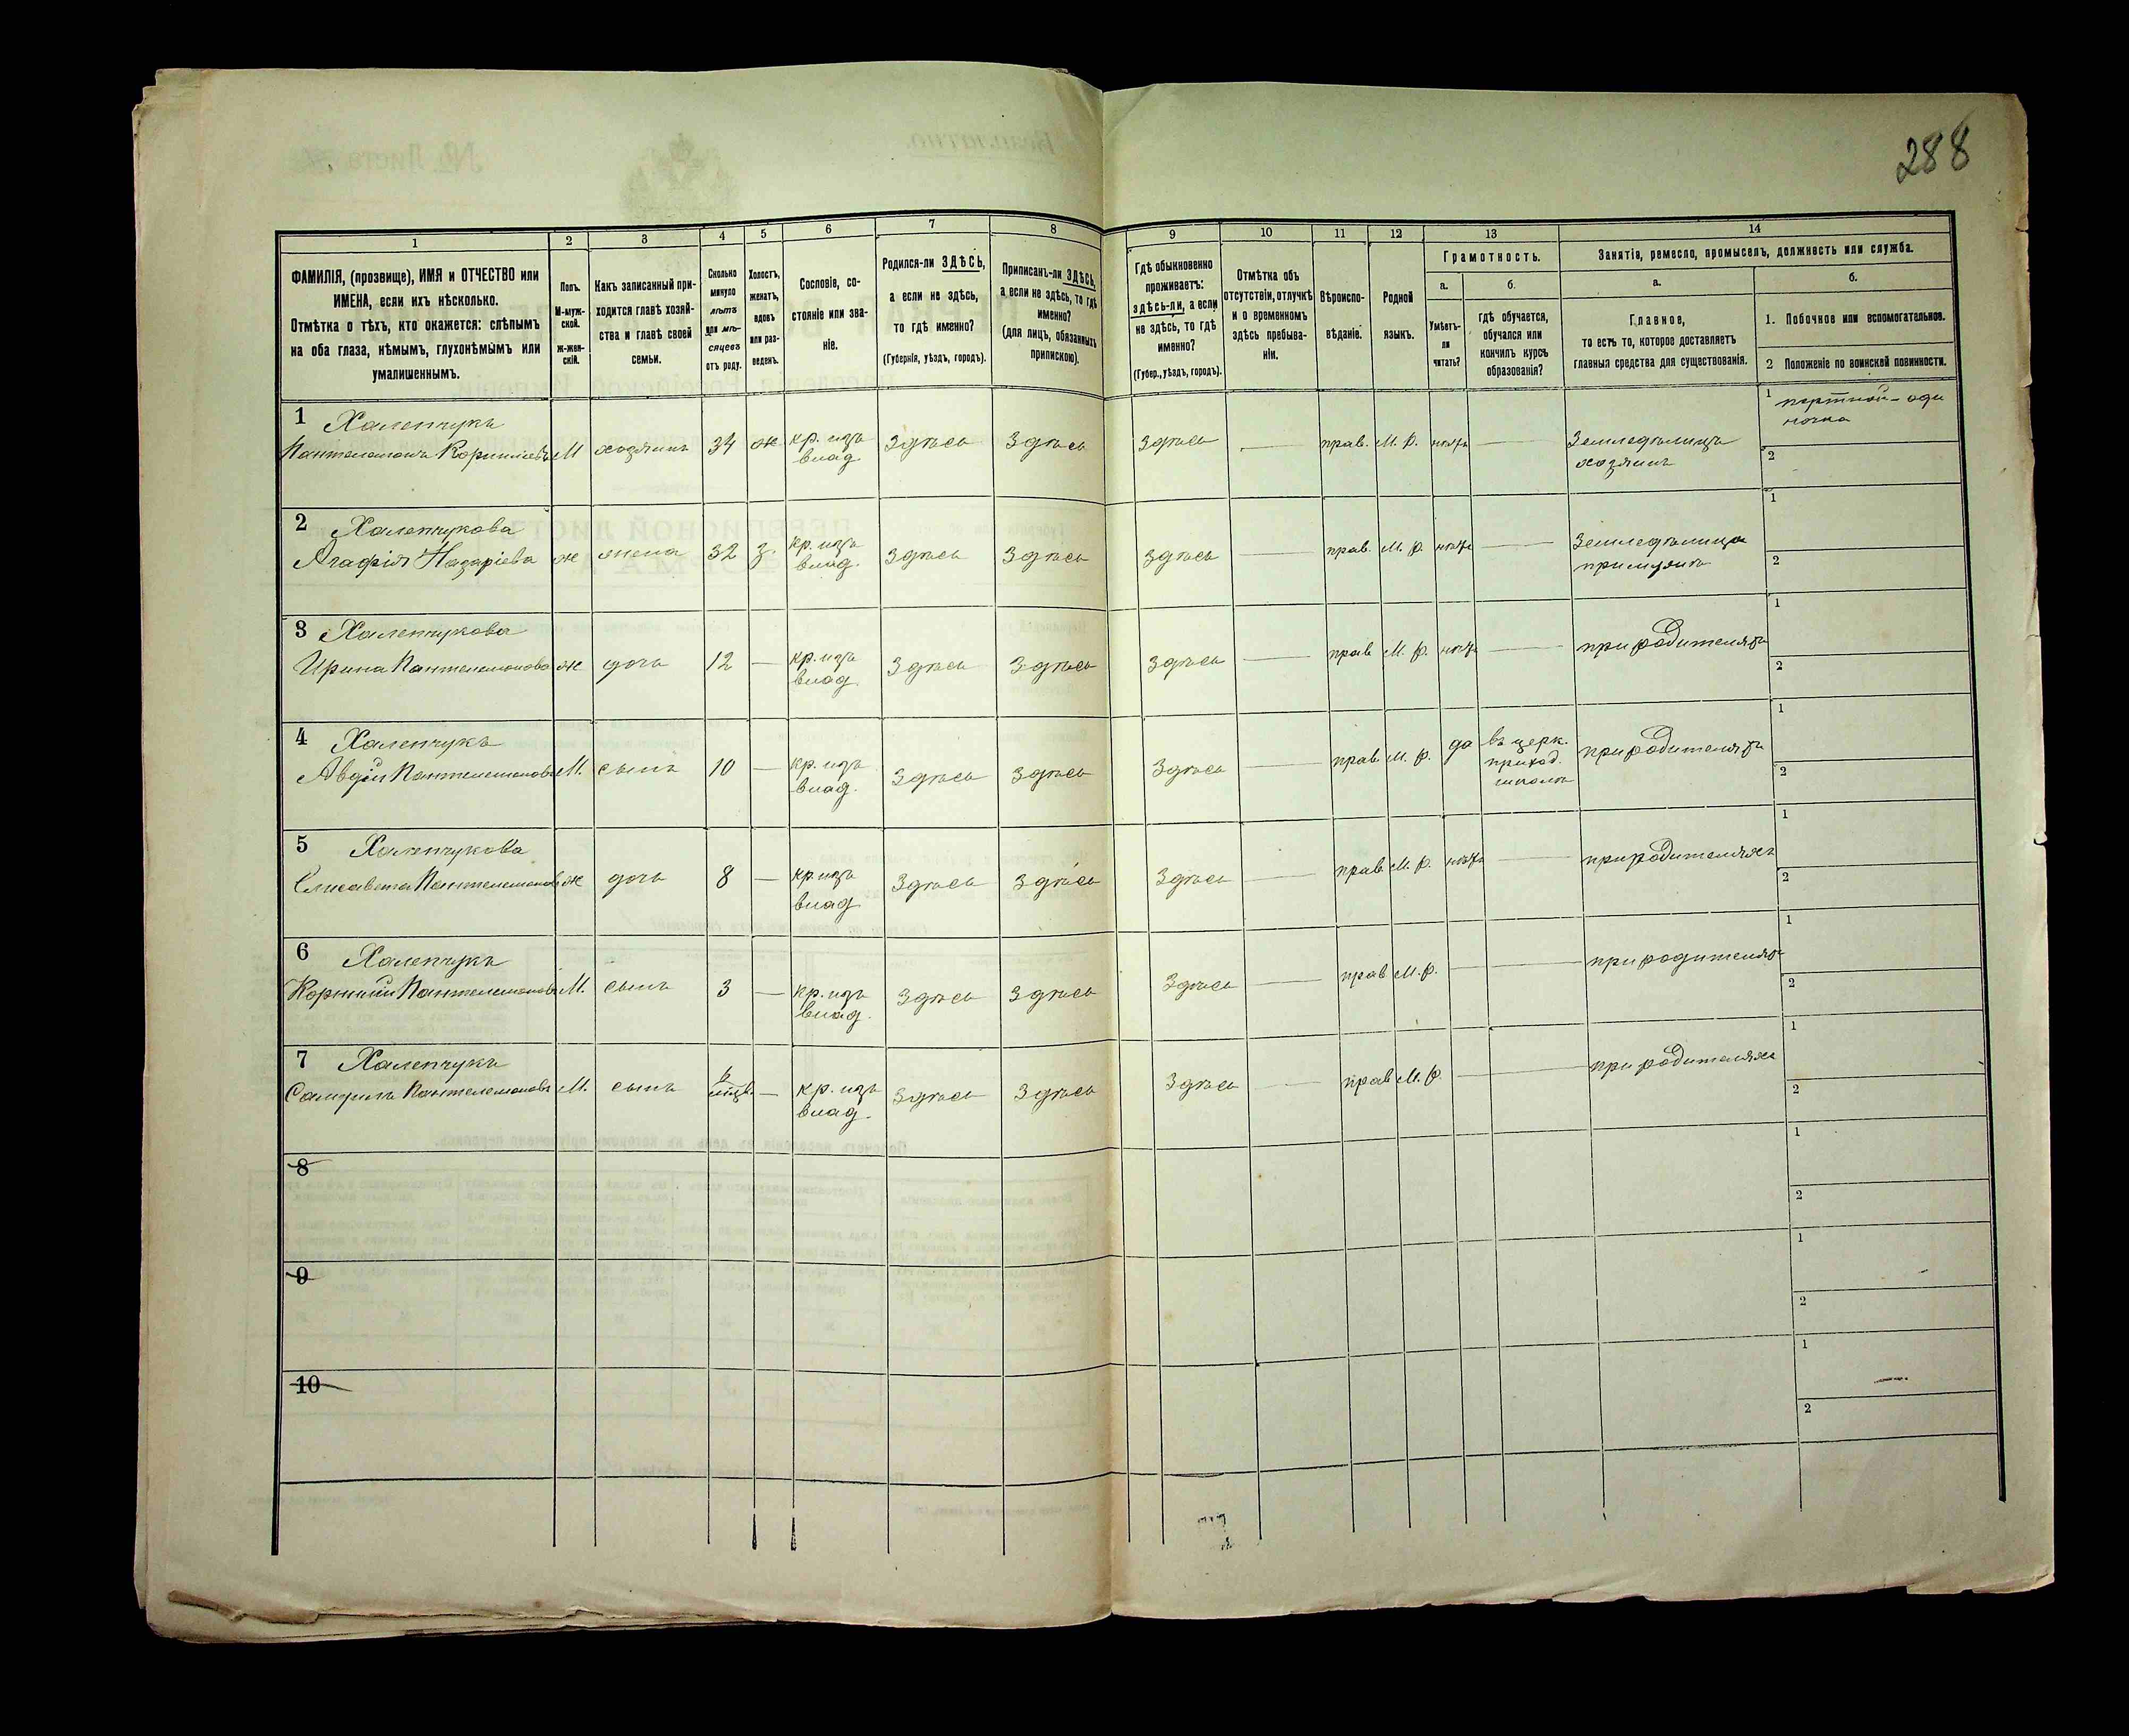 288
1 2 3 4 5 6 7 8 9 10 11 12 13 14
ФАМИЛІЯ, (прозвище), ИМЯ и ОТЧЕСТВО или
ИМЕНА, если ихъ нѣсколько.
Отмѣтка о тѣхъ, кто окажется: слѣпымъ
на оба глаза, нѣмымъ, глухонѣмымъ или
умалишеннымъ.
Полъ.
М-муж-
ской.
ж-жен-
скій.
Какъ записанный при-
ходится главѣ хозяй-
ства и главѣ своей
семьи.
Сколько
минуло
лѣтъ
или мѣ-
сяцевъ
отъ роду.
Холостъ,
женатъ,
вдовъ
или раз-
веденъ.
Сословіе, со-
стояніе или зва-
ніе.
Родился-ли ЗДѢСЬ,
а если не здѣсь,
то гдѣ именно?
(Губернія, уѣздъ, городъ).
Приписанъ-ли ЗДѢСЬ,
а если не здѣсь, то гдѣ
именно?
(для лицъ, обязанныхъ
припискою).
Гдѣ обыкновенно
проживаетъ:
здѣсь-ли, а если
не здѣсь, то гдѣ
именно?
(Губер., уѣздъ, городъ).
Отмѣтка объ
отсутствіи, отлучкѣ
и о временномъ
здѣсь пребыва-
ніи.
Вѣроиспо-
вѣданіе.
Родной
языкъ.
Грамотность.
а.
Умѣетъ-
ли
читать?
б.
гдѣ обучается,
обучался или
кончилъ курсъ
образованія?
Занятія, ремесло, промыселъ, должность или служба.
а.
Главное,
то есть то, которое доставляетъ
главныя средства для существованія.
б.
1. Побочное или вспомогательное.
2 Положеніе по воинской повинности.
1 Халепчукъ
Пантелемонъ Корнилiевъ М хозяинъ 34 ж кр. изъ влад. Здѣсь Здѣсь Здѣсь — прав. М. р. нѣтъ — Земледѣлецъ хозяинъ 1 портной – оди
ночка
2
2 Халепчукова
Агафія Назаріева ж жена 32 з. кр. изъ влад. Здѣсь Здѣсь Здѣсь — прав. М. р. нѣтъ — Земледѣлица при мужѣ 1
2
3 Халепчукова
Ирина Пантелемонова ж дочь 12 — кр. изъ влад. Здѣсь Здѣсь Здѣсь — прав М. р. нѣтъ — при родителяхъ 1
2
4 Халепчукъ
Авдій Пантелемоновъ М. сынъ 10 — кр. изъ влад. Здѣсь Здѣсь Здѣсь — прав М. р. да въ церк. приход. школѣ при родителяхъ 1
2
5 Халепчукова
Елисавета Пантелемонова ж дочь 8 — кр изъ влад Здѣсь Здѣсь Здѣсь — прав М. р. нѣтъ — при родителяхъ 1
2
6 Халепчукъ
Корнилій Пантелемоновъ М. сынъ 3 — кр. изъ влад. Здѣсь Здѣсь Здѣсь — прав М. р. — при родителяхъ 1
2
7 Халепчукъ
Пантелемоновъ М. сынъ — кр. изъ влад. Здѣсь Здѣсь Здѣсь — прав М. р. — при родителяхъ 1
2
8 1
2
9 1
2
10 1
2